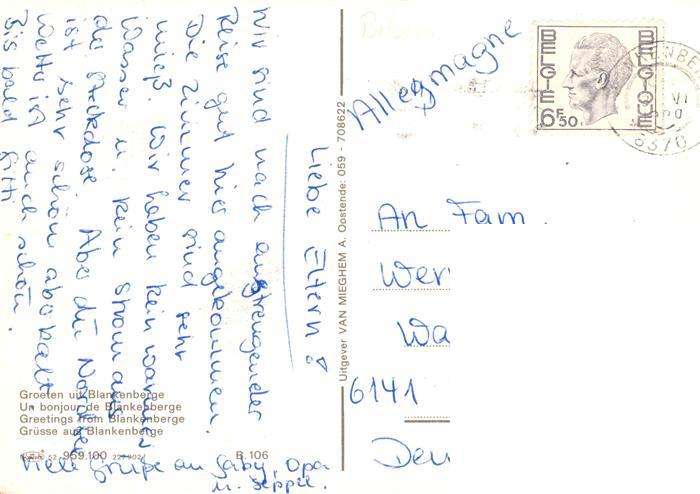 Liebe Eltern!
Wir sind nach anstrengender
Reise gut hier angekommen.
Die Zimmer sind sehr
mieß. Wir haben kein warmes
Wasser u. kein Strom aus
der Steckdose. Aber die Nordsee
ist sehr schön aber kalt
Wetter ist auch schön.
Bis bald Gitti
Viele Grüße an Gaby, Opa
u. Seppel.
Groeten uit Blankenberge
Un bonjour de Blankenberge
Greetings from Blankenberge
Grüsse aus Blankenberge
52 959.100
B.106
Uitgever VAN MIEGHEM A. Oostende: 059 - 708622
BELGIE
BELGIQUE
6F50
VI
8370
Allemagne
An Fam.
Wer
Wa
6141
Deu